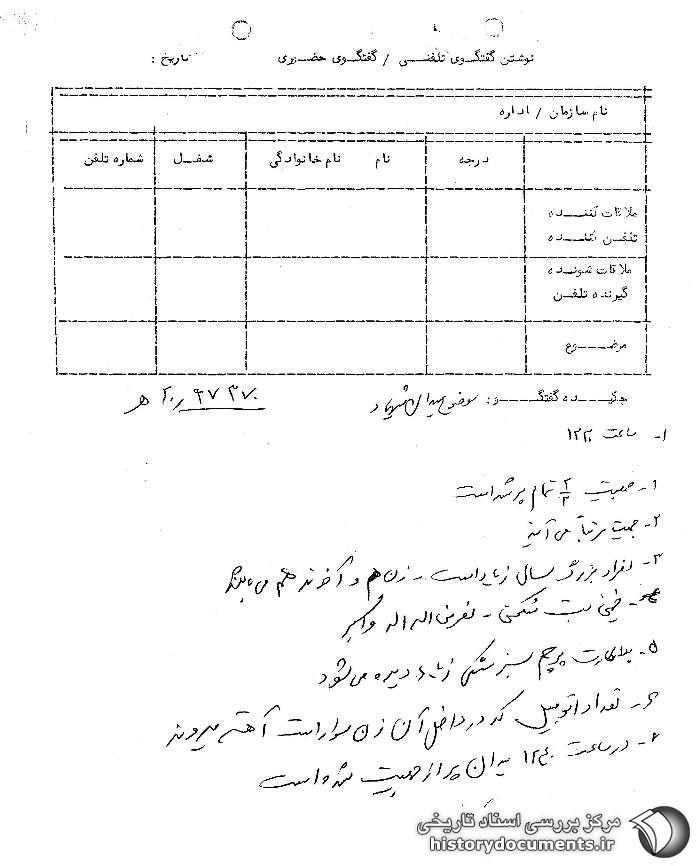 نوشتن گفتگوی تلفنی / گفتگوی حضوری تاریخ :
نام سازمان / اداره
درجه نام نام خانوادگی شغل شماره تلفن
ملاقات کننده
تلفن کننده
ملاقات شونده
گیرنده تلفن
موضوع
چکیده گفتگو : موضوع میدان شهیاد
۱- ساعت ۱۲۳۰
۱- جمعیت ۲/۳ تمام پر شده است
۲- جمعیت مرتباً می آیند
۳- افراد بزرگ سال زیاد است - زن هم و آخوند هم می باشد
خمینی بت شکنی - نفر من اله اله واکبر
۵- پرچم سبز مشکی زیاد دیده می شود
۶- تعداد اتومبیل که در داخل آن زن سوار است آهسته میروند
۷- در ساعت ۱۲۴۰ میدان پر از جمعیت شده است
مرکز بررسی اسناد تاریخی
historydocuments.ir